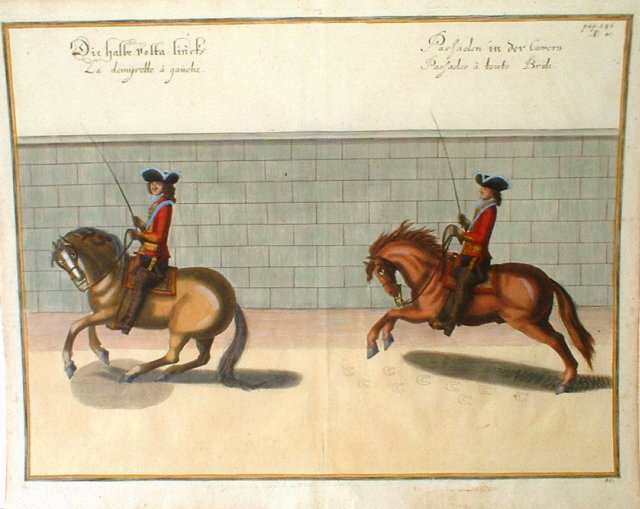 Die halbe Volta lincks
La demyvolte à gauche.
Passaden in der Carrera
Passades à toute Bride.
pag.